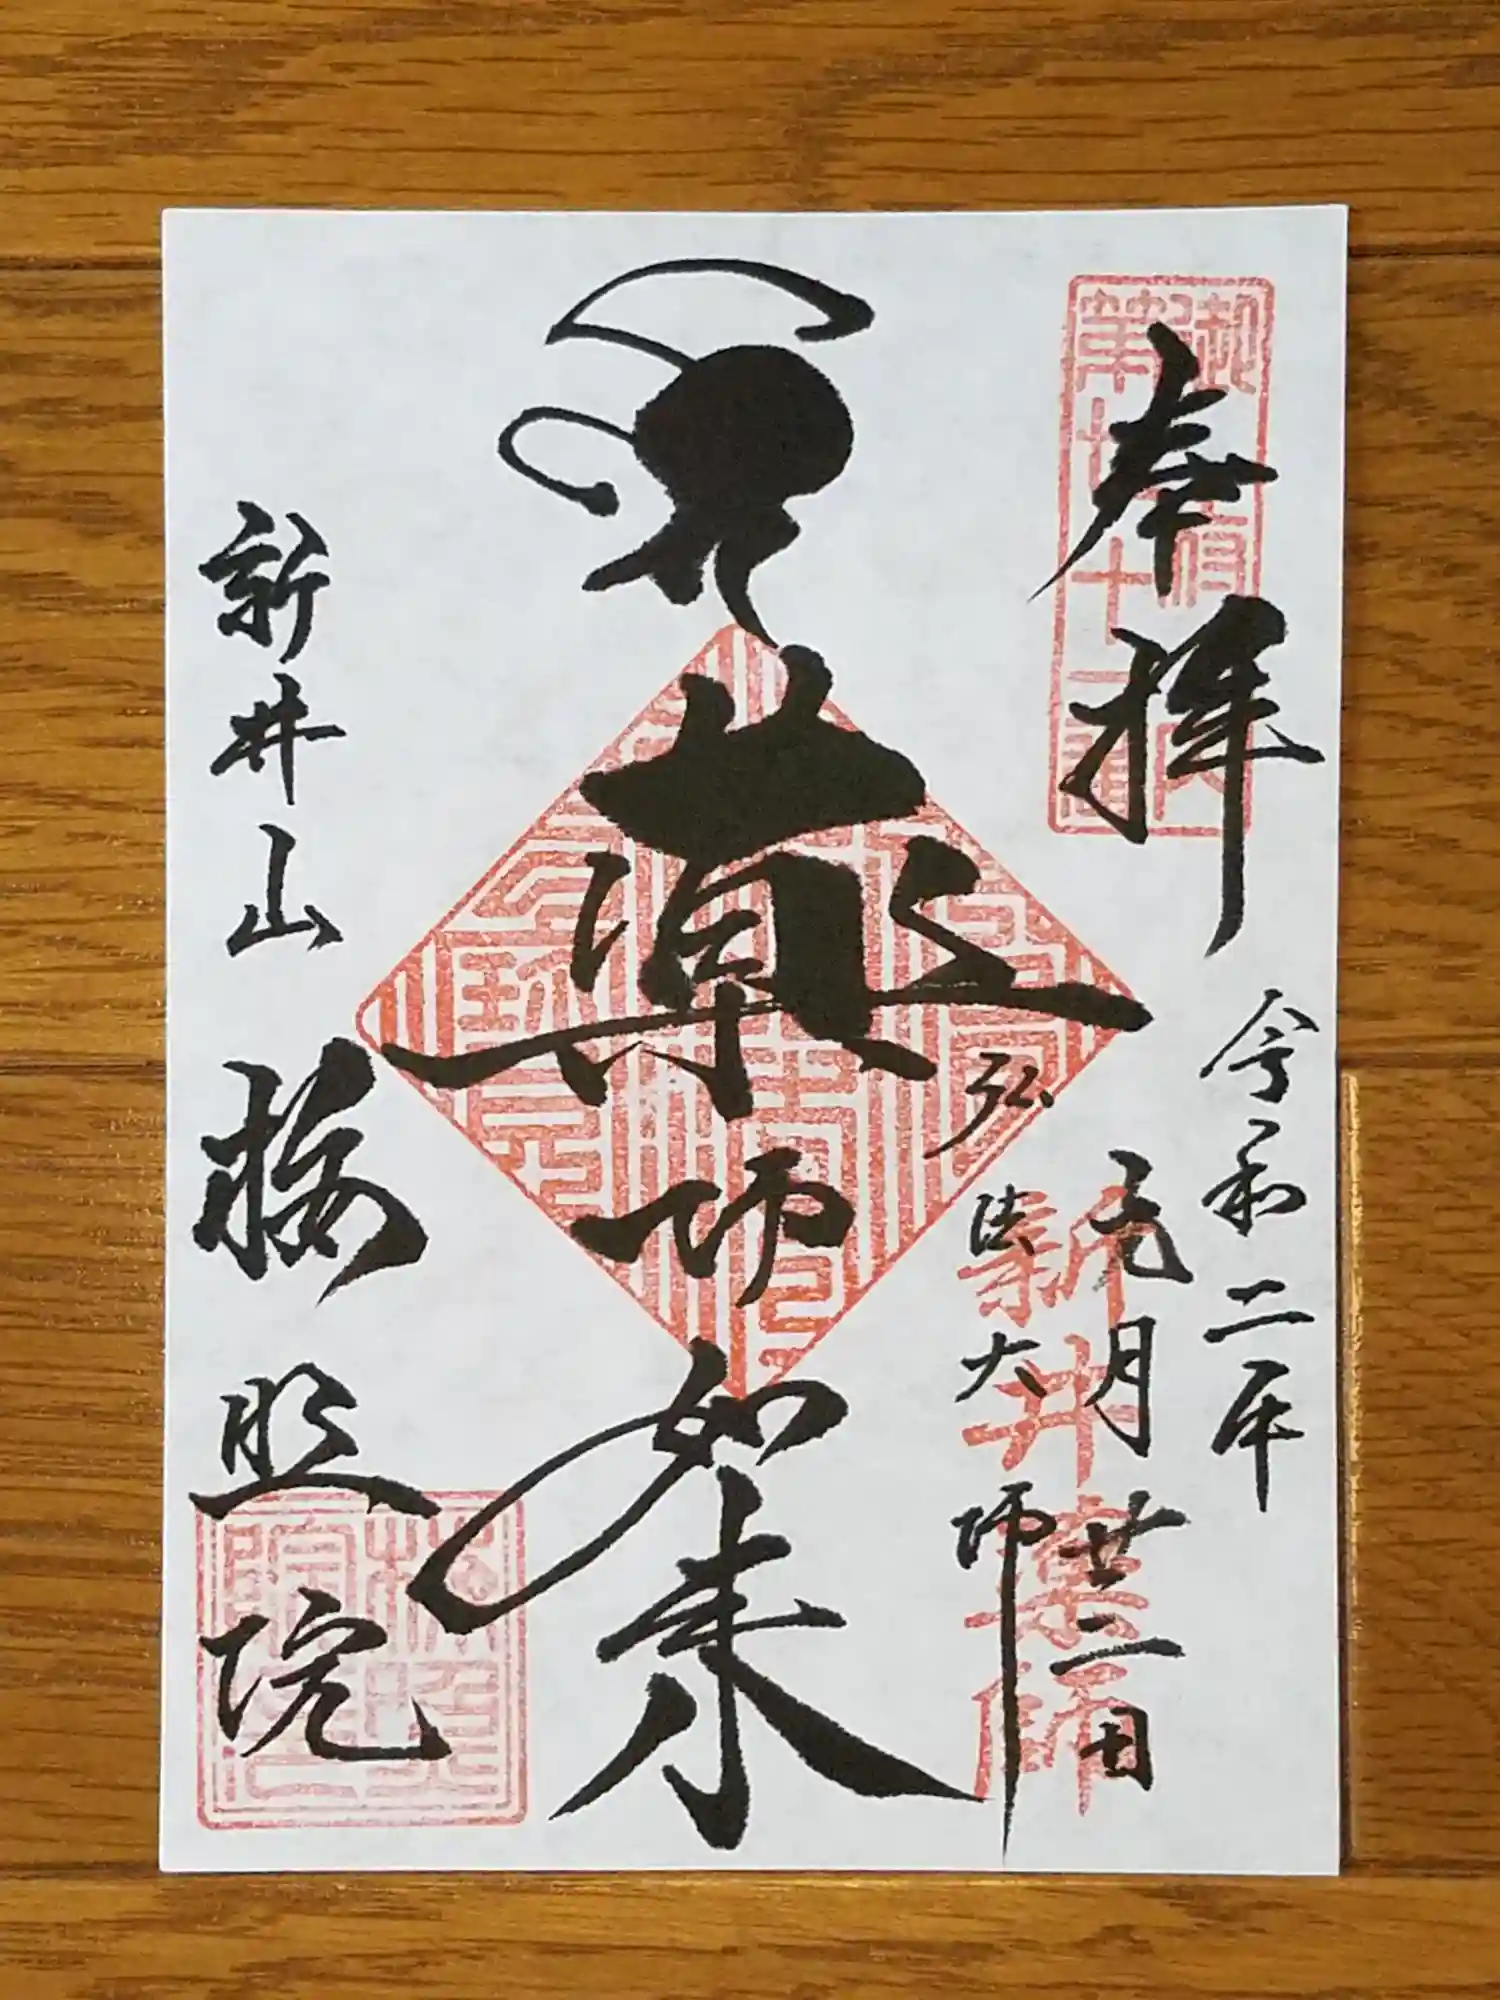 奉拝
令和二年
元月廿二日
弘法大師
薬師如来
新井山
梅照院
新井薬師